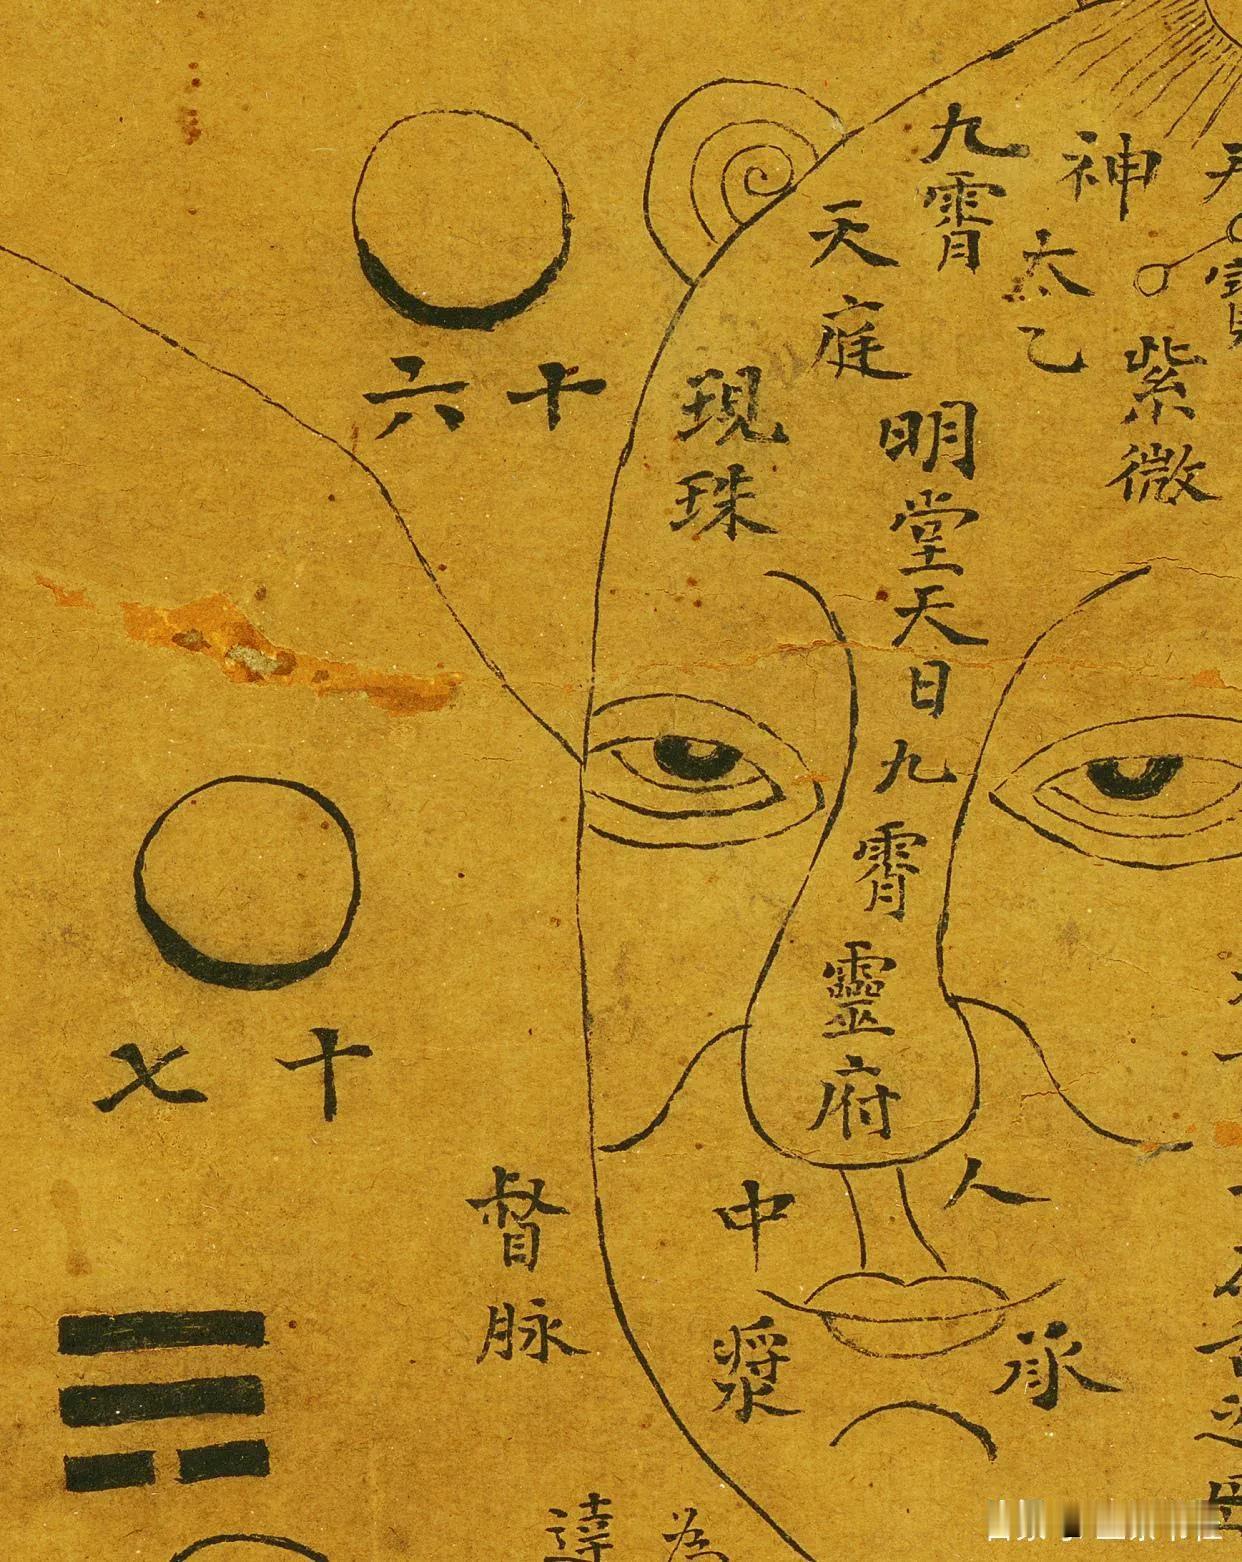 神
紫微
太乙
九霄
天庭
明堂天日九霄靈府
現珠
十六
十七
人中
承漿
督脉
為
達